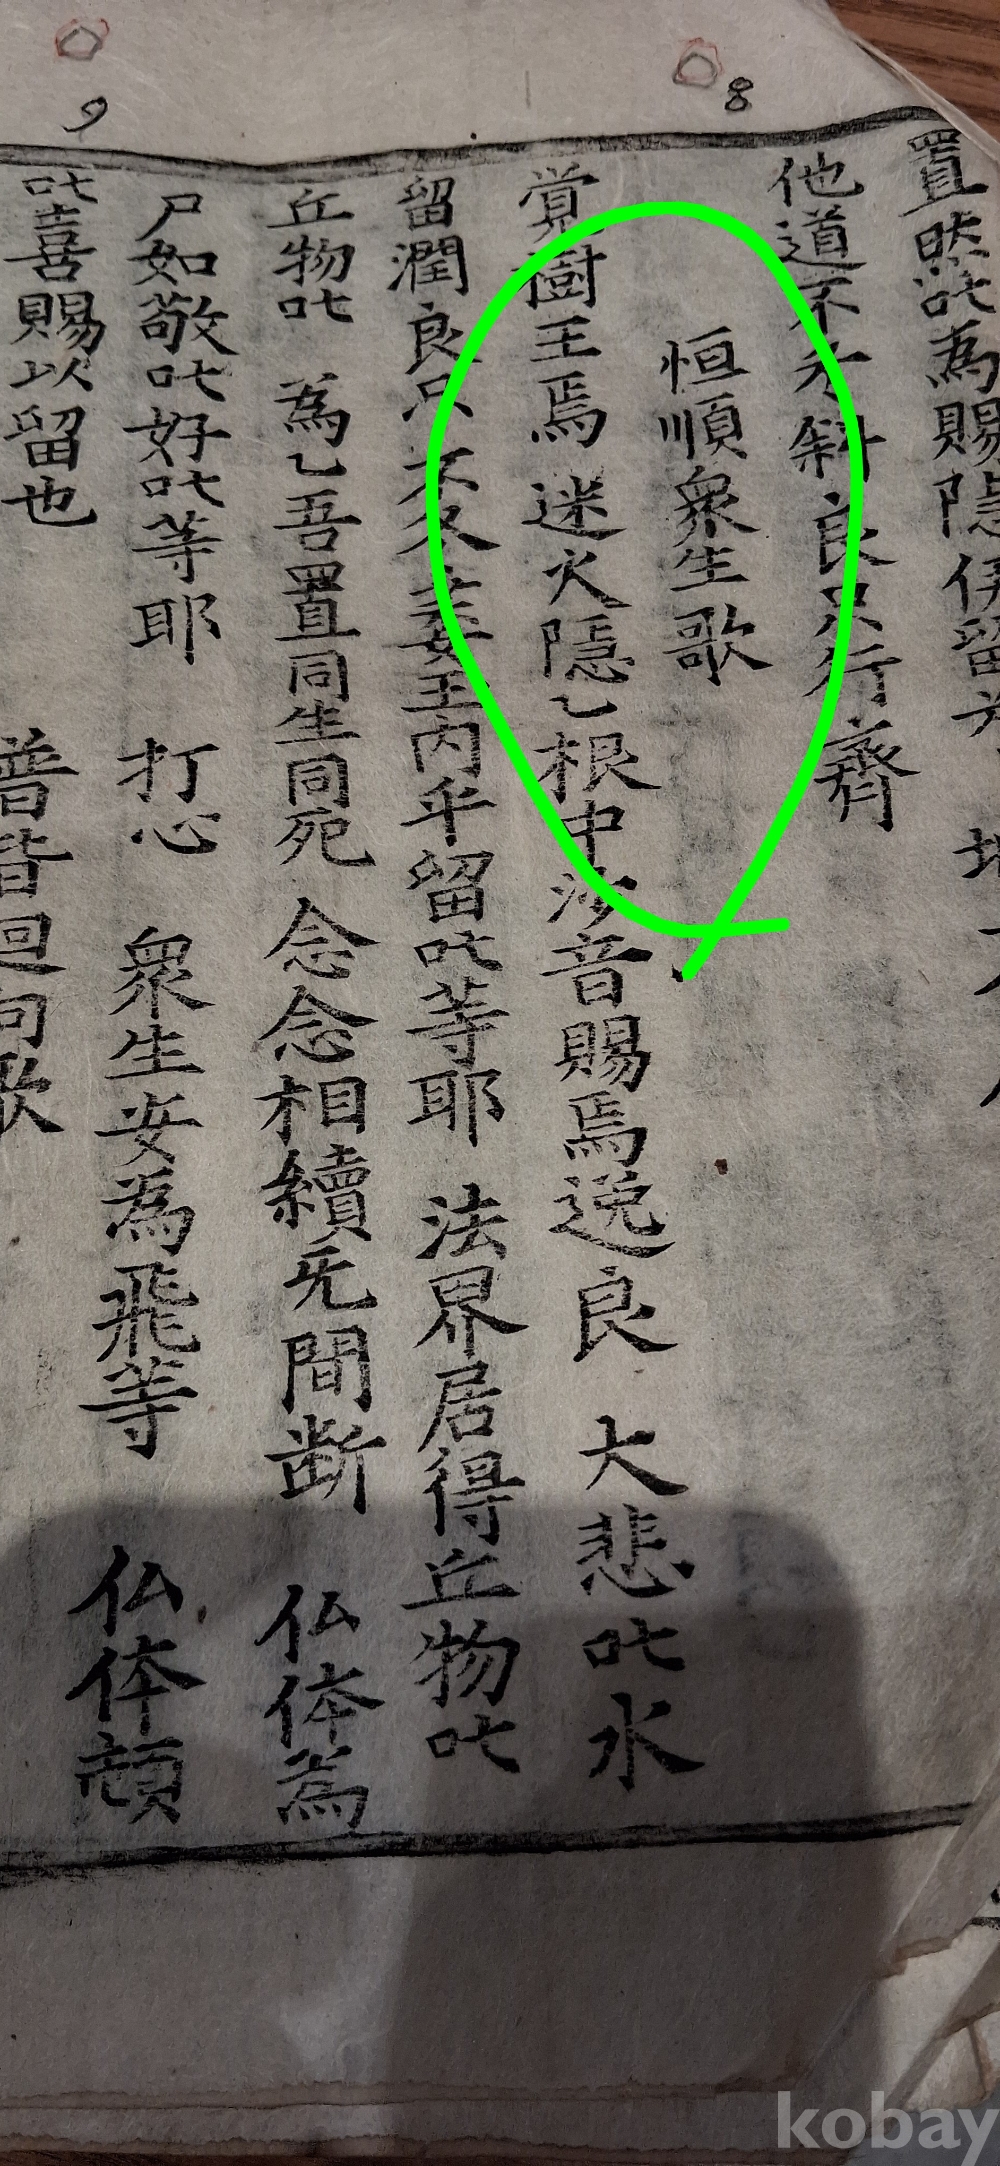 8
9
置然叱為賜隱伊留
他道不冬斜良只行齊
恒順衆生歌
覚樹王焉 迷火隱乙根中沙音賜焉逸良 大悲叱水
留潤良只不冬萎玉內乎留叱等耶 法界居得丘物叱
丘物叱 為乙吾置同生同死 念念相續无間断 仏体為
尸如敬叱好叱等耶 打心 衆生安為飛等 仏体頓
叱喜賜以留也
普皆廻向歌
kobay